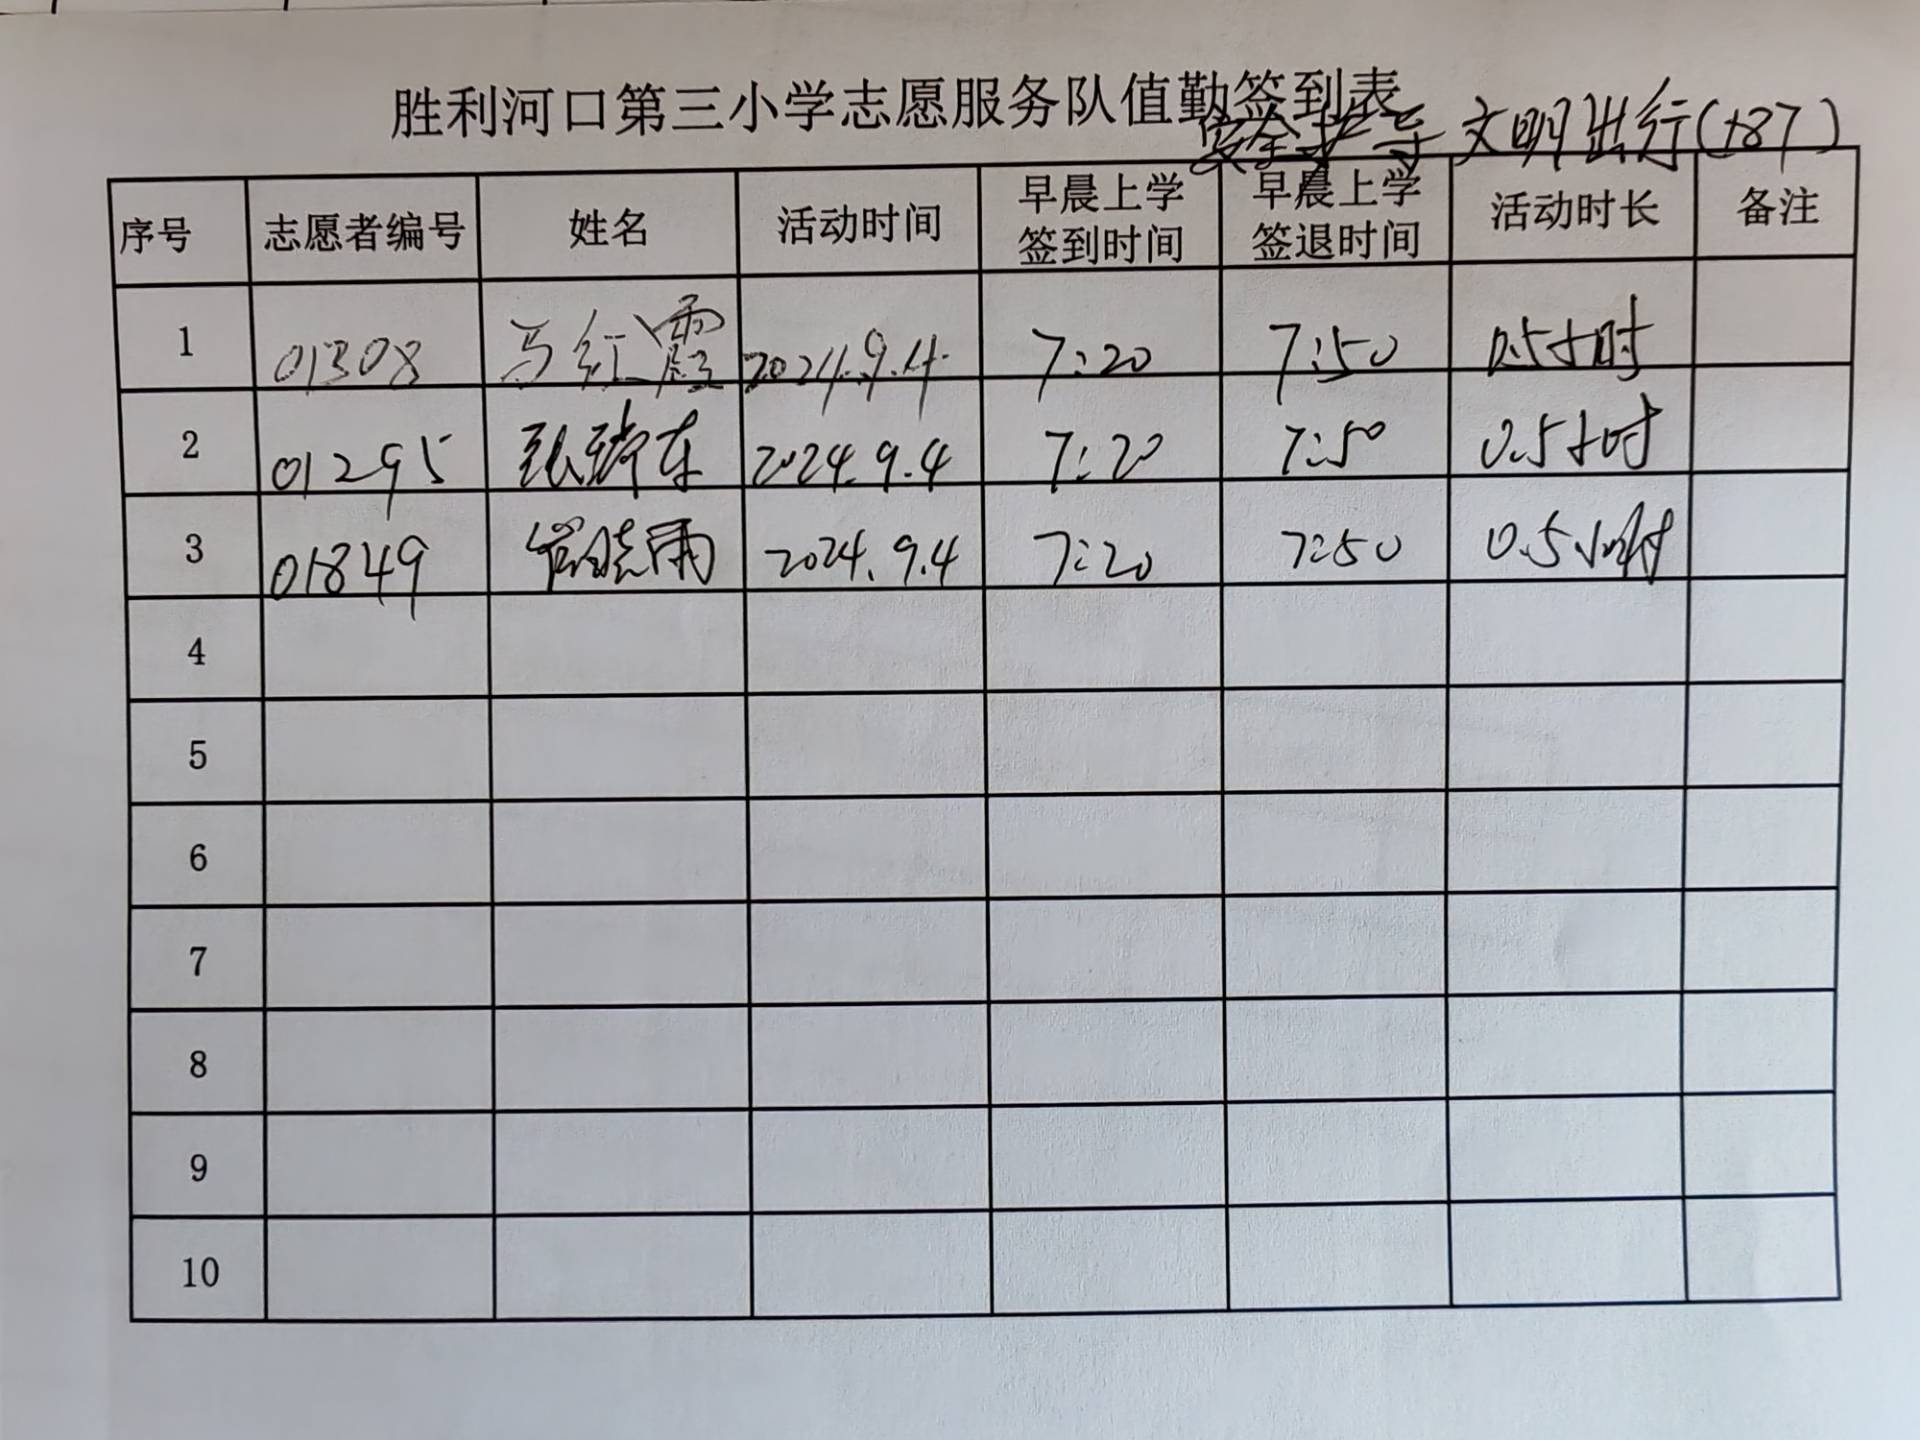 胜利河口第三小学志愿服务队值勤签到表
安全护导 文明出行(187)
序号 志愿者编号 姓名 活动时间 早晨上学签到时间 早晨上学签退时间 活动时长 备注
1 01308 马红霞 2024.9.4 7:20 7:50 0.5小时
2 01295 张瑞东 2024.9.4 7:20 7:50 0.5小时
3 01849 崔晓雨 2024.9.4 7:20 7:50 0.5小时
4
5
6
7
8
9
10